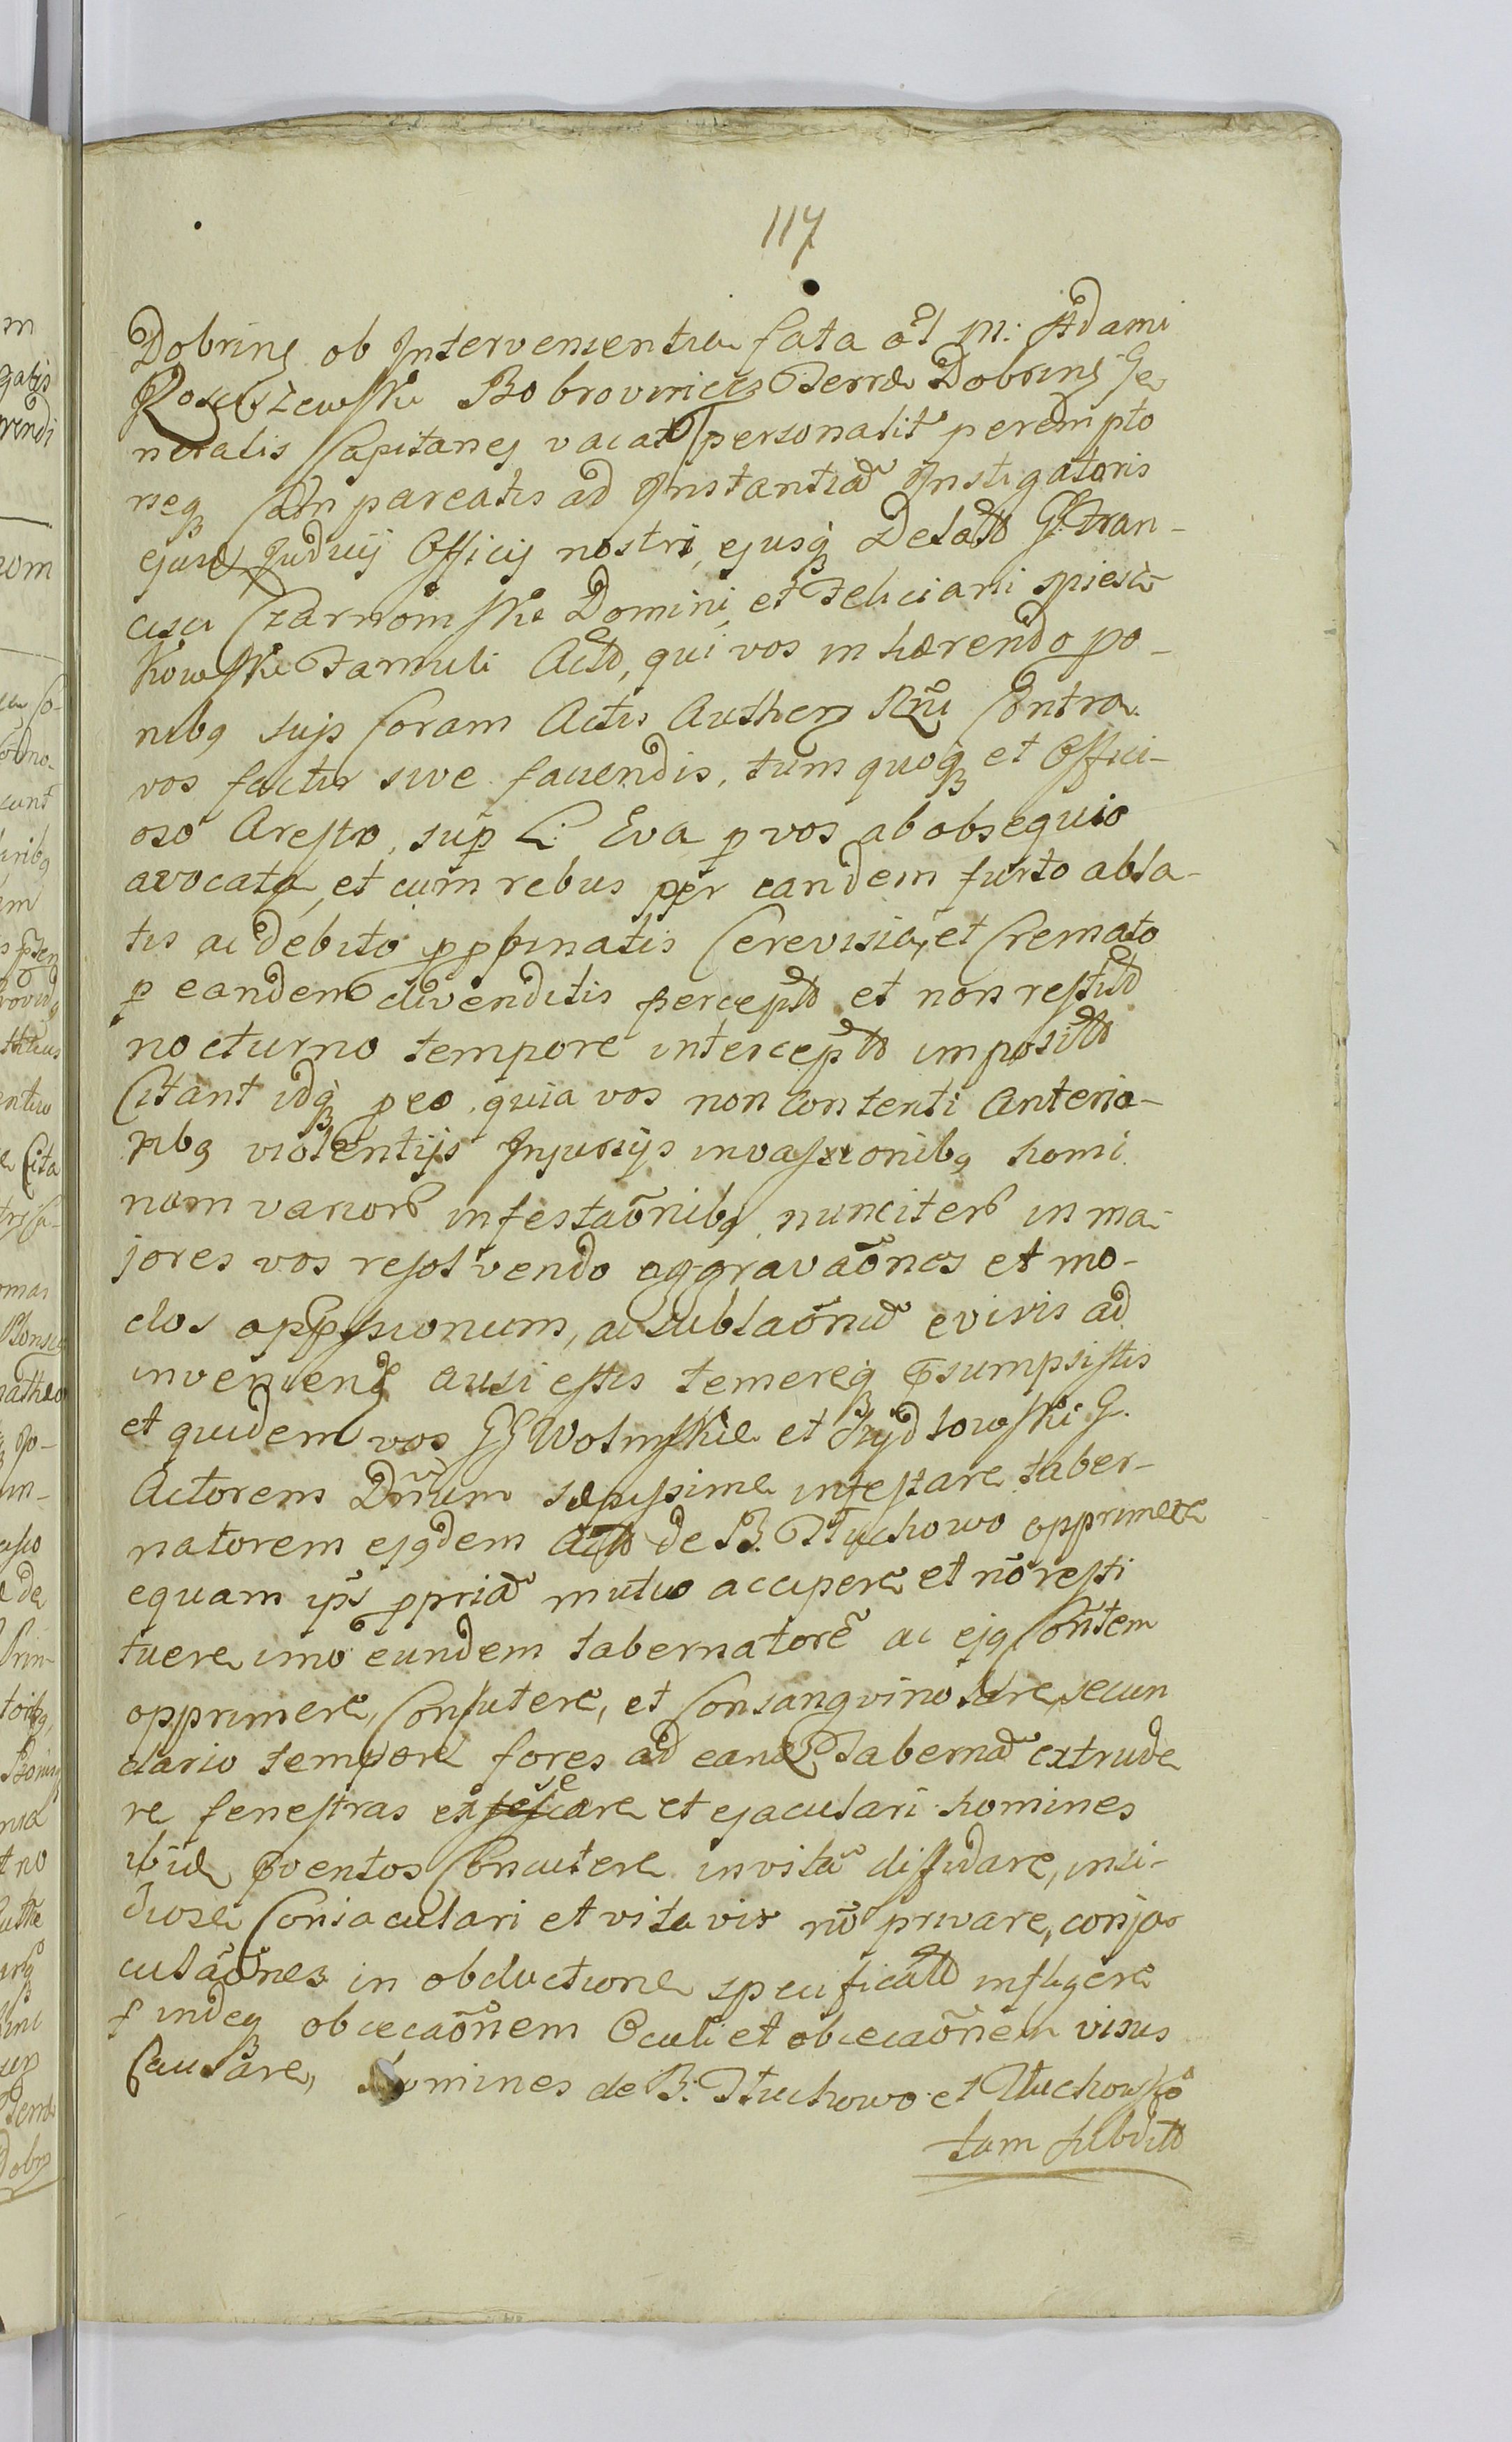 117
Dobrinẽ ob Intervenientia fata ol M: Adami
Rosciszewski Bobrovinicẽ Terræ Dobrinẽ Ge
neralis Capitanej vacat personalitr peremptο
rieq Compareatis ad Instantiã Instigatoris
ejusd Judicij Officij nostri, ejusq Delator G Fran-
cisci Czarnomski Domini, et Feliciani
kowski Famuli Actor, qui vos inhærendo
nibq suis Coram Actis Authen Rni Contra
vos factis sive faciendis, tum quoq et Offici-
oso Aresto, sup L: Eva p vos ab obsequio
avocata, et cum rebus per eandem furto abla-
tis ac debito p ppinatis Cerevisia, et Cremato
p eandem divenditis percept et non restit
nocturno tempore intercept imposit
Citant idq peo, quia vos non contenti Anterio-
ribq violentijs Injurijs invassionibq homi
num varior infestaõnibq, nunc iter in ma-
jores vos resolvendo aggravaõnes et mo-
dos oppssionum, ac sublaõnu e vivis ad
inveniend ausi estis temereq psumpsistis
et quidem vos GG Wolinskie et G.
Actorem Dnum sæpissime infestare taber-
natorem ejqdem Act de B. Tłuchowo opprimere
equam ips ppriã mutuo accipere et nõ resti
tuere, imo eundem tabernatorẽ ac ejq Contem
opprimere, Concutere, et Consangvino secun
dario tempore fores ad eand Tabernã extrude
re fenestras et ejaculari homines
ibid pventos Concutere in vitã diffidare, insi-
diose Coniaculari et vita vix nõ privare, conja-
culaõnes in obductione specificat infligere
indeq obcecaõnem Oculi et obcecaõnem visus
Causare, Homines de B: Tłuchowo et
tam subdit